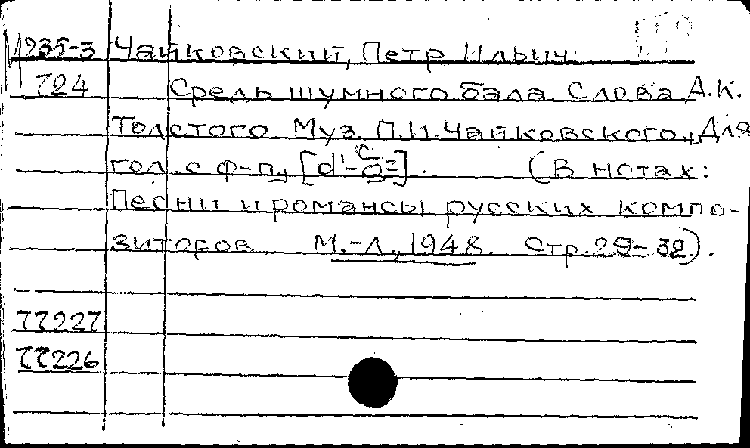 М 935-3 Чайковский, Петр Ильич.
724 Средь шумного бала. Слова А.К.
Толстого. Муз. П.И. Чайковского. Для
гол. с ф-п.,
(В нотах:
Песни и романсы русских компо-
зиторов. М.-Л., 1948. Стр. 29-32).
77227
77226